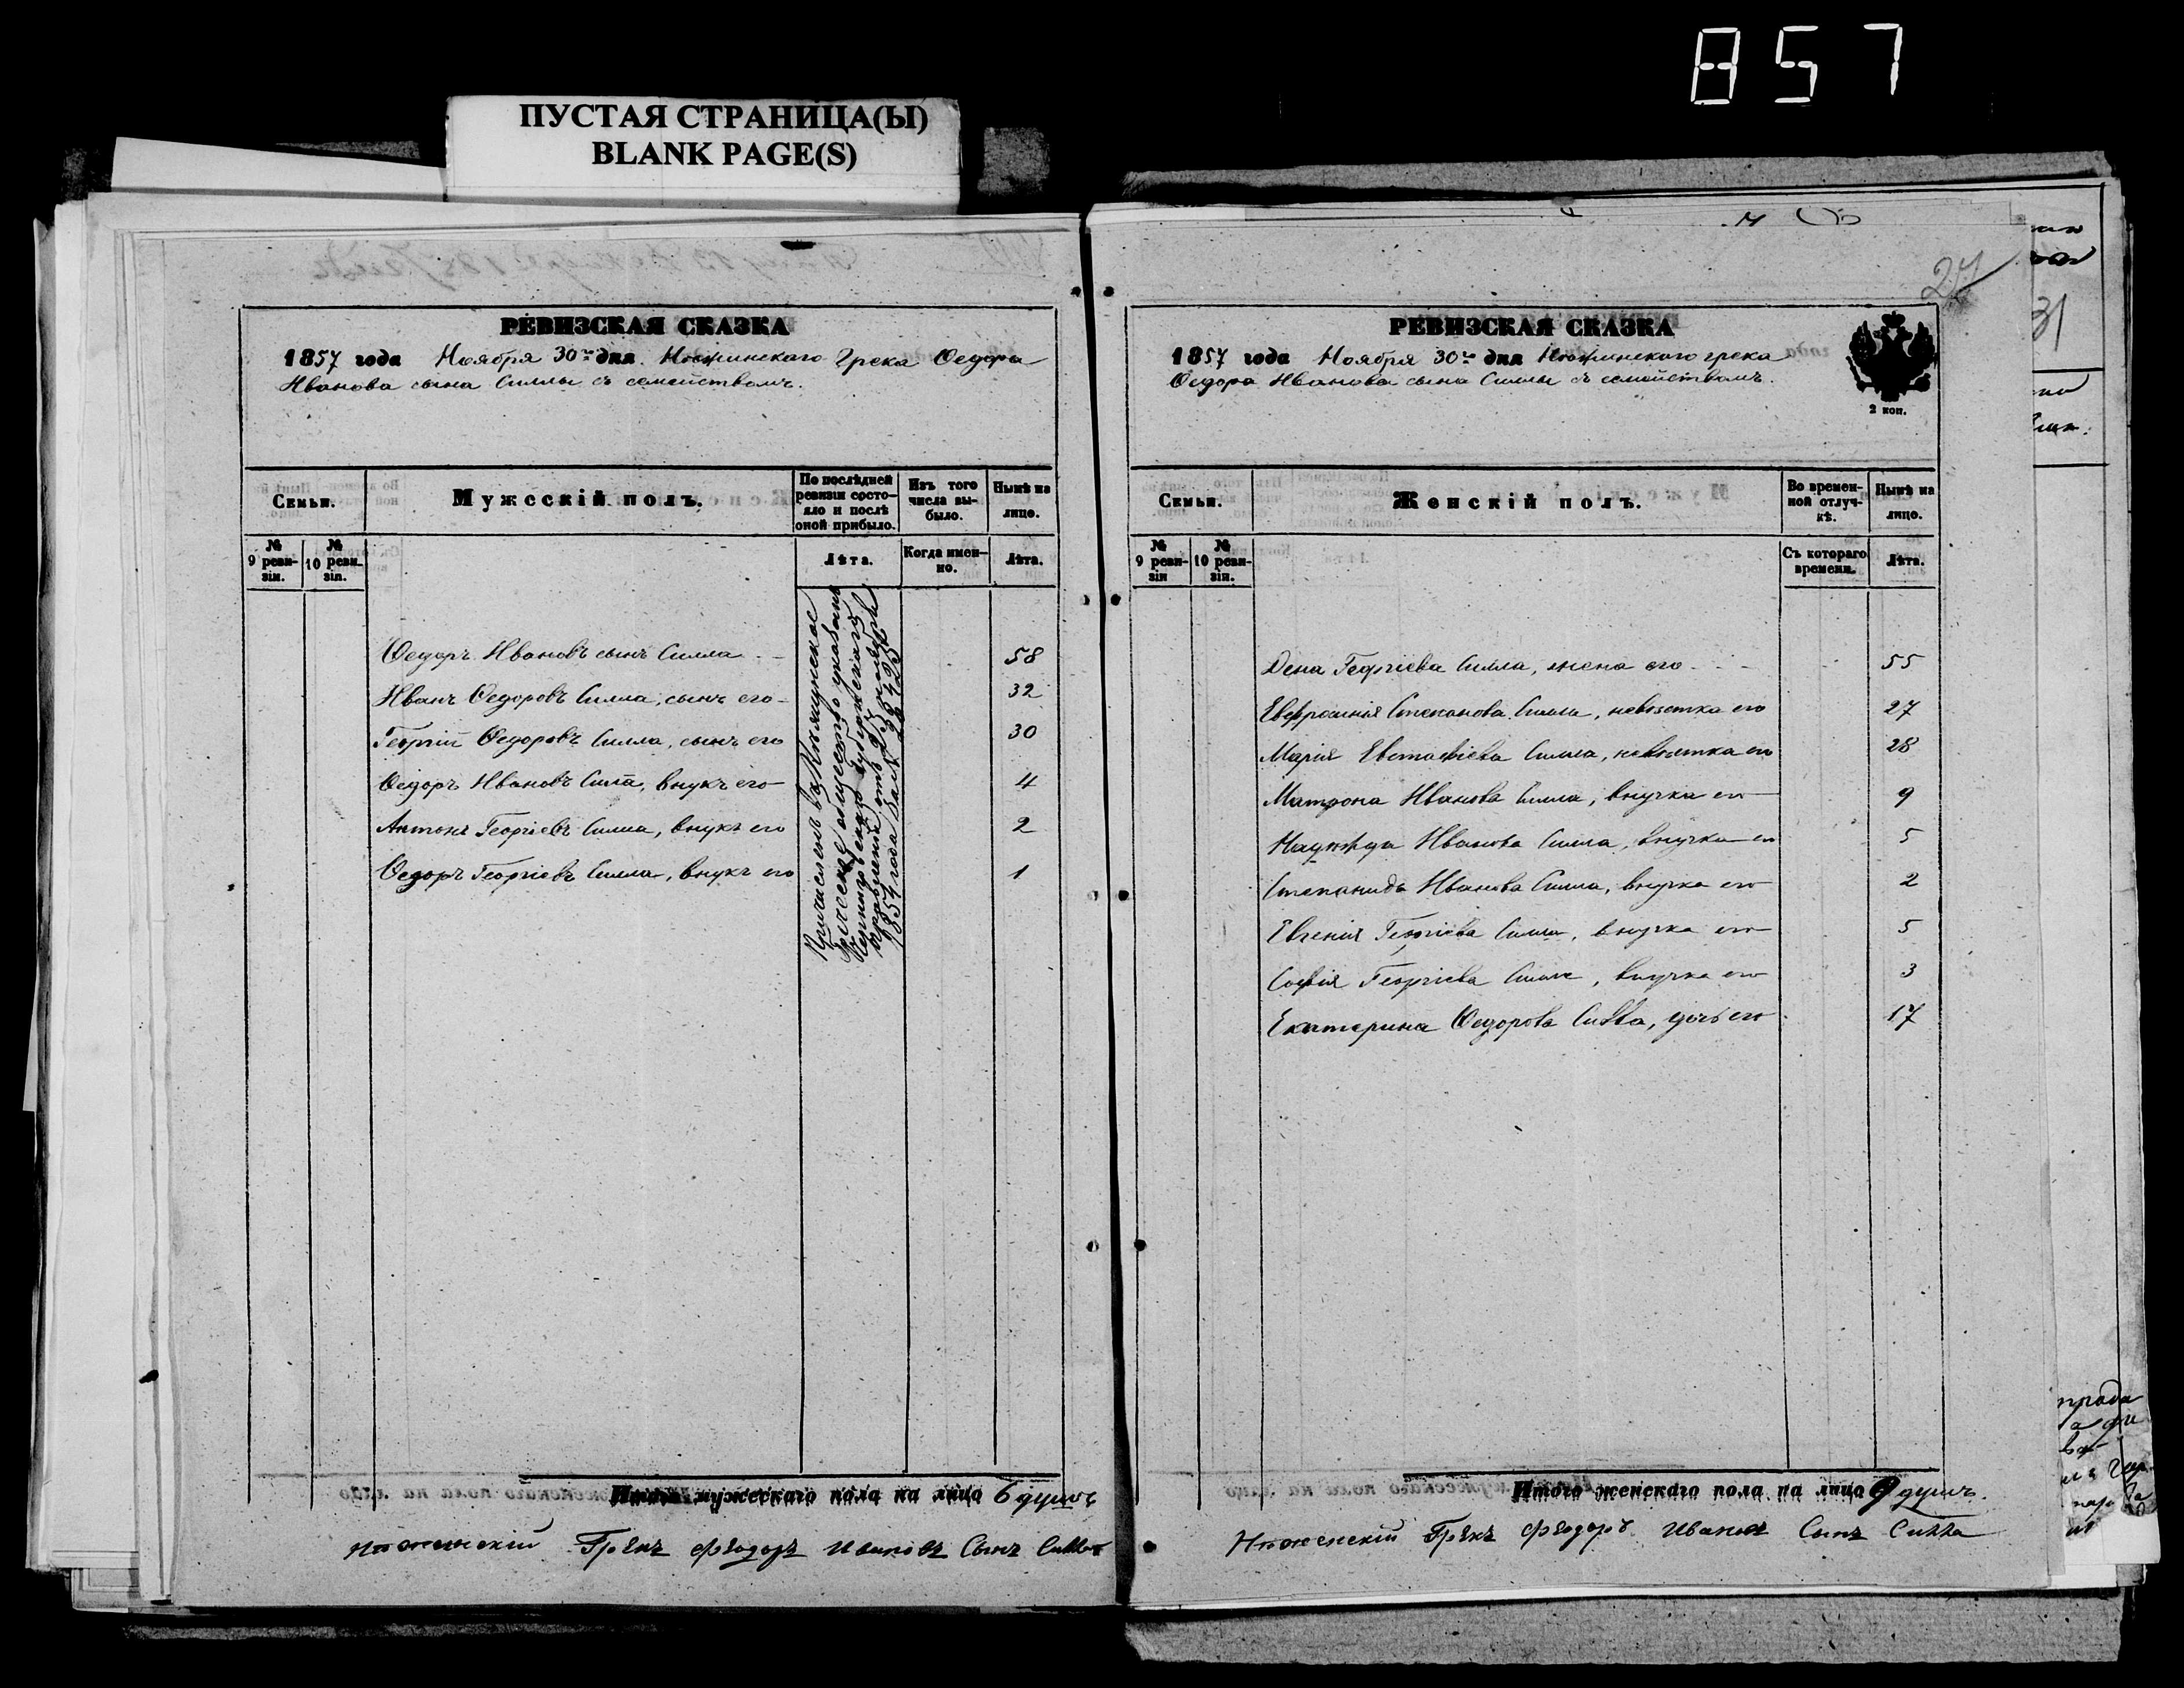 857
ПУСТАЯ СТРАНИЦА(Ы)
BLANK PAGE(S)
РЕВИЗСКАЯ СКАЗКА
1857 года Ноября 30го дня Нѣжинскаго Грека Ѳедора
Иванова сына Силлы съ семействомъ.
Семьи.
Мужескій полъ.
По послѣдней ревизіи состояло и послѣ оной прибыло.
Изъ того числа выбыло.
Нынѣ на лицо.
№ 9 ревизіи.
№ 10 ревизіи.
Лѣта.
Когда именно.
Лѣта.
Ѳедоръ Ивановъ сынъ Силла 58
Иванъ Ѳедоровъ Силла, сынъ его 32
Георгій Ѳедоровъ Силла, сынъ его 30
Ѳедоръ Ивановъ Силла, внукъ его 4
Антонъ Георгіевъ Силла, внукъ его 2
Ѳедоръ Георгіевъ Силла, внукъ его 1
Причисленъ въ Нѣжинское
Греческое общество указомъ
Черниговскаго Губернскаго
Правленія отъ
1857 года за №
Итого мужескаго пола на лицо 6 душъ
Нѣженскій Грекъ Фѣодоръ Ивановъ Сынъ Силла
27
РЕВИЗСКАЯ СКАЗКА
1857 года Ноября 30го дня Нѣжинскаго грека
Ѳедора Иванова сына Силлы съ семействомъ.
2 коп.
Семьи.
Женскій полъ.
Во временной отлучкѣ.
Нынѣ на лицо.
№ 9 ревизіи
№ 10 ревизіи.
Съ котораго времени.
Лѣта.
Дена Георгіева Силла, жена его 55
Евфросинія Степанова Силла, невѣстка его 27
Марія Евстафіева Силла, невѣстка его 28
Матрона Иванова Силла, внучка его 9
Надежда Иванова Силла, внучка его 5
Степанида Иванова Силла, внучка его 2
Евгенія Георгіева Силла, внучка его 5
Софія Георгіева Силла, внучка его 3
Екатерина Ѳедорова Силла, дочь его 17
Итого женскаго пола на лицо 9 душъ.
Нѣженскій Грекъ Фѣодоръ Ивановъ Сынъ Силла
31